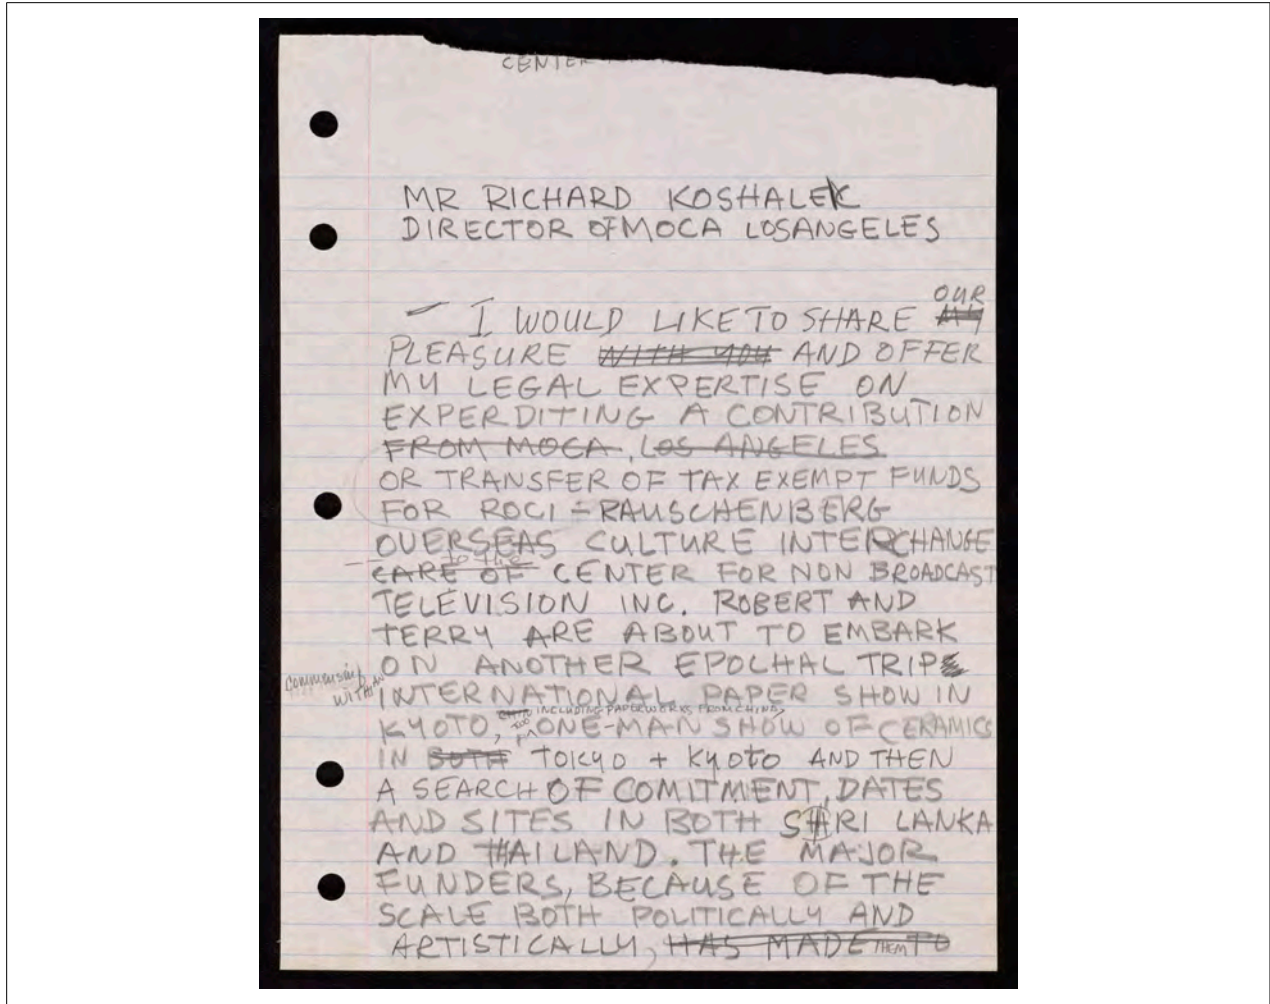 CENTER
MR RICHARD KOSHALEK
DIRECTOR OF MOCA LOSANGELES
OUR
— I WOULD LIKE TO SHARE MY
PLEASURE WITH YOU AND OFFER
MY LEGAL EXPERTISE ON
EXPERDITING A CONTRIBUTION
FROM MOCA, LOS ANGELES
OR TRANSFER OF TAX EXEMPT FUNDS
FOR ROCI - RAUSCHENBERG
OVERSEAS CULTURE INTERCHANGE
to the
CARE OF CENTER FOR NON BROADCAST
TELEVISION INC. ROBERT AND
TERRY ARE ABOUT TO EMBARK
ON ANOTHER EPOCHAL TRIP
commensing
WITH AN
INTERNATIONAL PAPER SHOW IN
INCLUDING PAPERWORKS FROM CHINA,
KYOTO, ONE-MAN SHOW OF CERAMICS
IN BOTH TOKYO + KYOTO AND THEN
A SEARCH OF COMITMENT, DATES
AND SITES IN BOTH SHRI LANKA
AND THAILAND. THE MAJOR
FUNDERS, BECAUSE OF THE
SCALE BOTH POLITICALLY AND
ARTISTICALLY, HAS MADE THEM TO